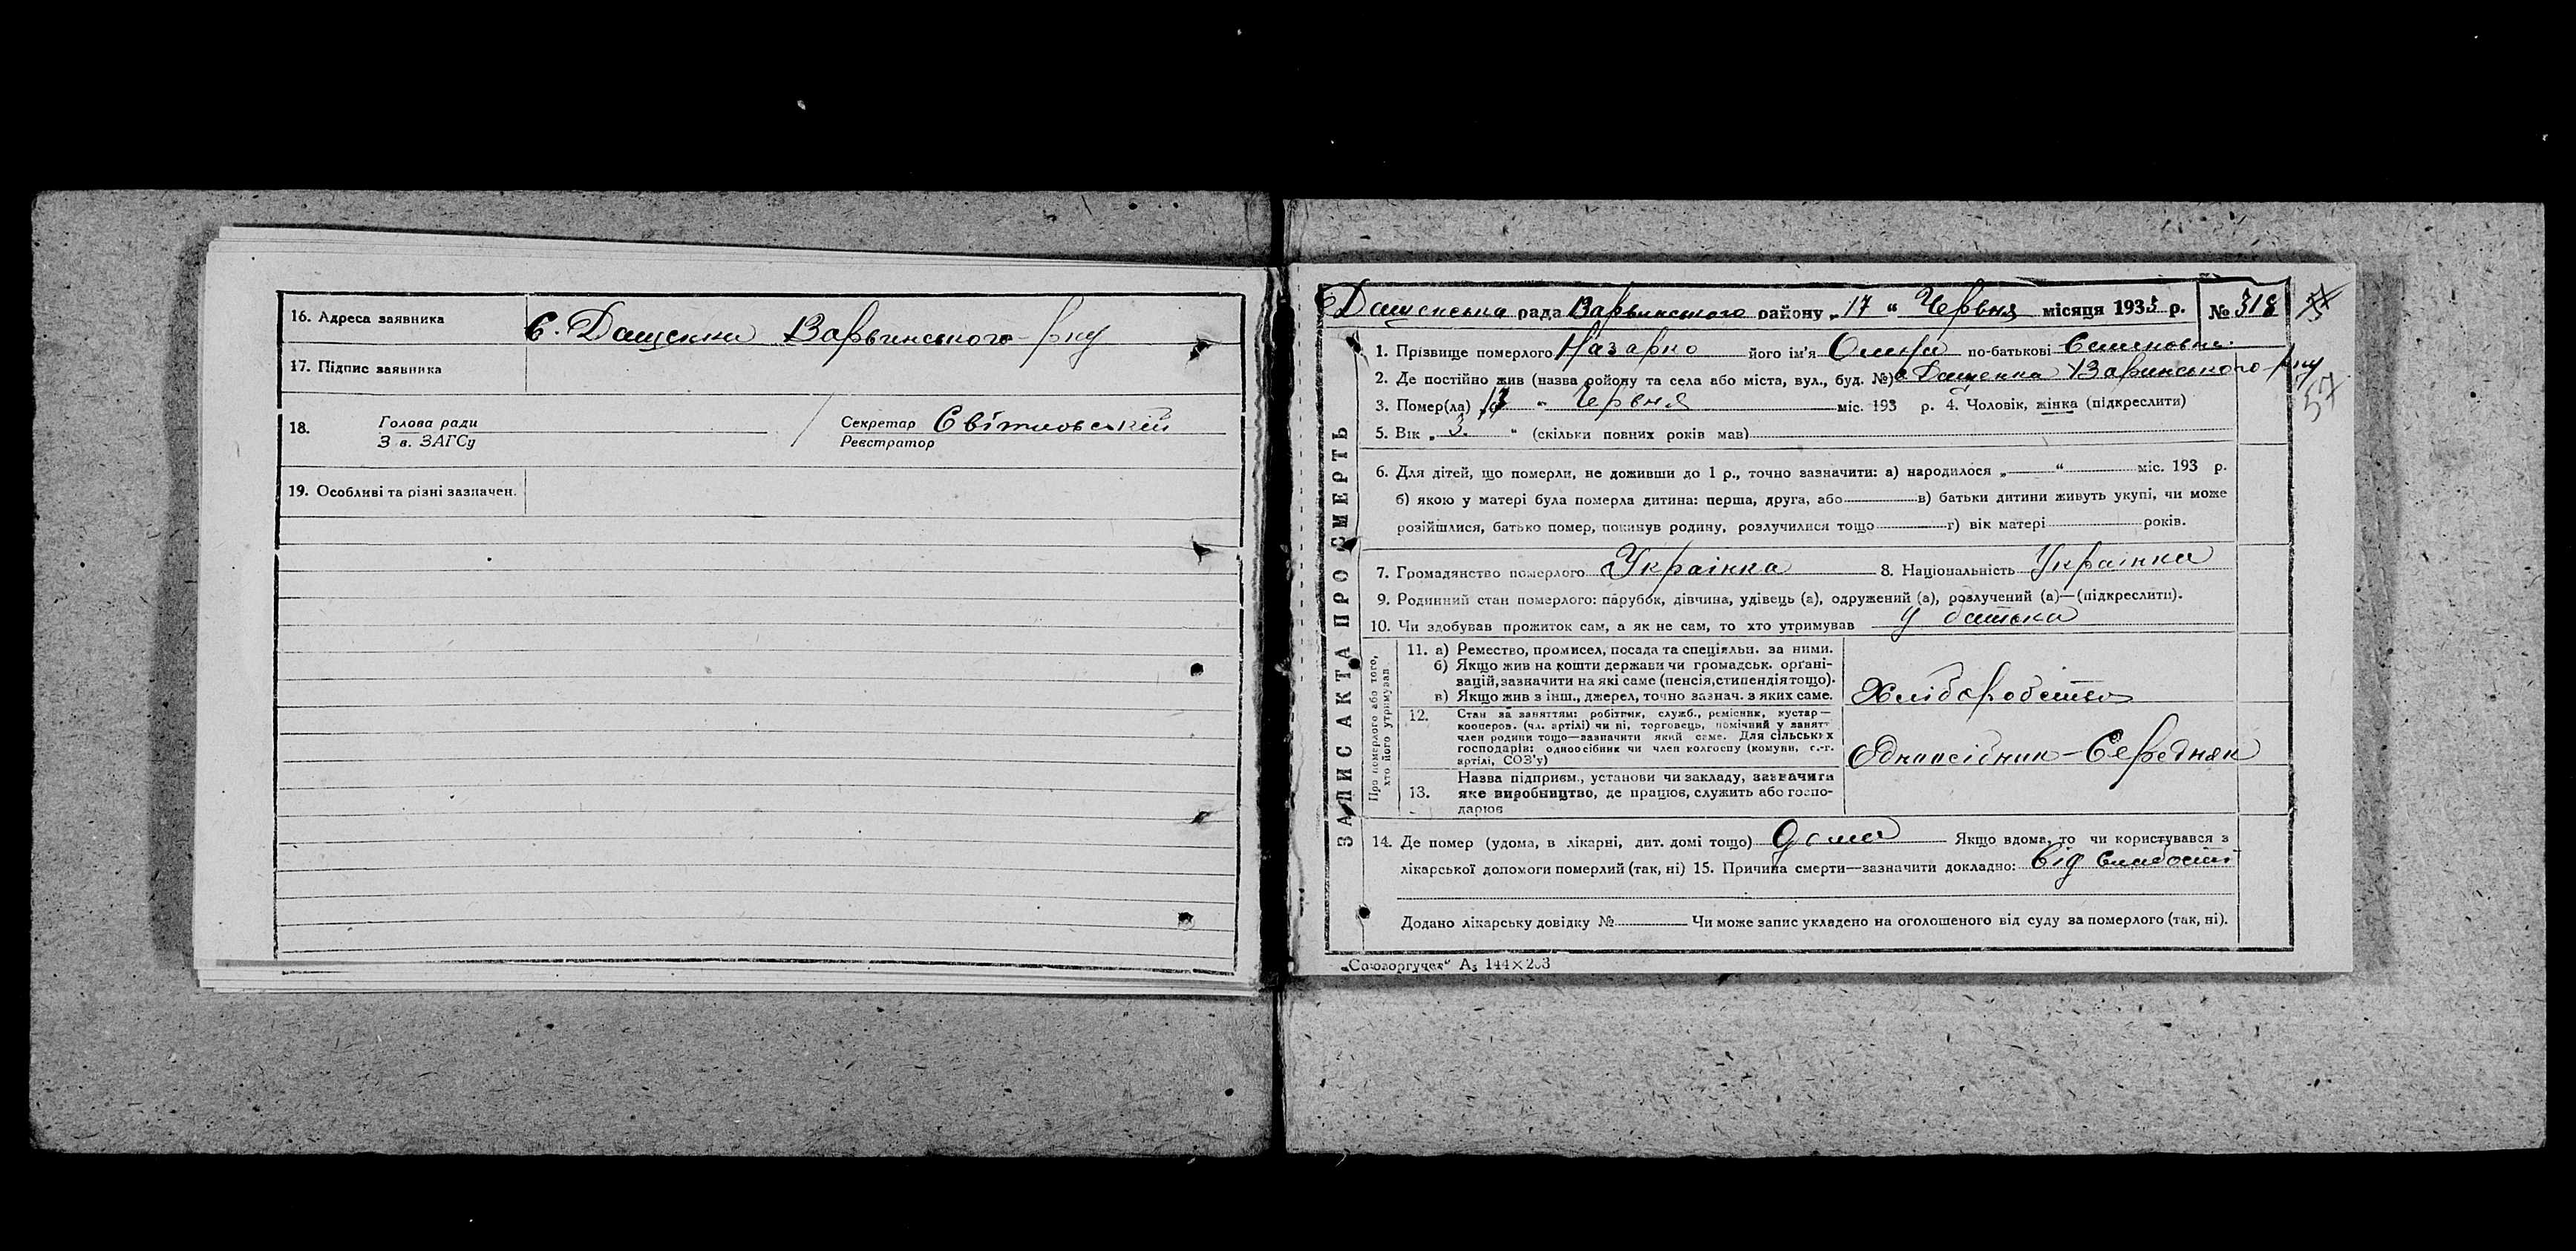 16. Адреса заявника
с. Дащенки Варвинського р-ну
17. Підпис заявника
18. Голова ради
З в. ЗАГСу
Секретар Світловський
Реєстратор
19. Особливі та різні зазначен.
Дащенська рада Варвинського району „17“ Червня місяця 1933 р. № 318
1. Прізвище померлого Назарко його ім'я по-батькові Семеновна
2. Де постійно жив (назва району та села або міста, вул., буд. №) с Дащенки Варвинського р-ну
57
3. Помер(ла) „ “ Червня міс. 193 р. 4. Чоловік, жінка (підкреслити)
5. Вік „3“ (скільки повних років мав)
6. Для дітей, що померли, не доживши до 1 р., точно зазначити: а) народилося „ “ міс. 193 р.
б) якою у матері була померла дитина: перша, друга, або в) батьки дитини живуть укупі, чи може
розійшлися, батько помер, покинув родину, розлучилися тощо г) вік матері років.
7. Громадянство померлого Украінка 8. Національність Украінка
9. Родинний стан померлого: парубок, дівчина, удівець (а), одружений (а), розлучений (а)—(підкреслити).
10. Чи здобував прожиток сам, а як не сам, то хто утримував у батька
ЗАПИС АКТА ПРО СМЕРТЬ
Про померлого або того, хто його утримував
11. а) Ремество, промисел, посада та спеціяльн. за ними.
б) Якщо жив на кошти держави чи громадськ. органі-
зацій, зазначити на які саме (пенсія, стипендія тощо).
в) Якщо жив з інш., джерел, точно зазнач. з яких саме.
Хліборобство
12. Стан за заняттям: робітник, служб., ремісник, кустар—
кооперов. (чл. артілі) чи ні, торговець, помічний у занятт
член родини тощо—зазначити який саме. Для сільських
господарів: одноосібник чи член колгоспу (комуни, с.-г.
артілі, СОЗ'у)
Одноосібник - Середняк
13. Назва підприєм., установи чи закладу, зазначити
яке виробництво, де працює, служить або госпо-
дарює
14. Де помер (удома, в лікарні, дит. домі тощо) дома Якщо вдома, то чи користувався з
лікарської допомоги померлий (так, ні) 15. Причина смерти—зазначити докладно: від слабости
Додано лікарську довідку № Чи може запис укладено на оголошеного від суду за померлого (так, ні).
„Союзоргучет“ А₅ 144×203